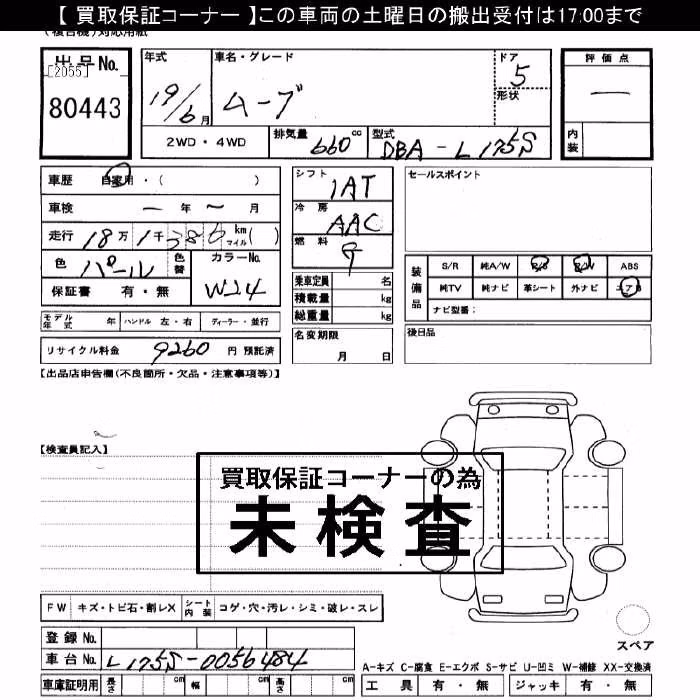 【 買取保証コーナー 】この車両の土曜日の搬出受付は17:00まで
(複合機)対応用紙
出品No.
[2055]
80443
年式
19/6月
車名・グレード
ムーブ
ドア
5
形状
評価点
一
内装
2WD・4WD
排気量 660cc
型式 DBA-L175S
車歴 自家用・( )
車検 一年 〜月
走行 18万1千386km マイル( )
色 パール
色替
カラーNo.
W24
保証書 有・無
モデル年式 年
ハンドル 左・右
ディーラー・並行
リサイクル料金 9260円 預託済
シフト
1AT
冷房
AAC
燃料
乗車定員 名
積載量 kg
総重量 kg
名変期限
月 日
セールスポイント
装備品
S/R 純A/W P/S P/W ABS
純TV 純ナビ 革シート 外ナビ エアB
ナビ型番:
後日品
【出品店申告欄(不良箇所・欠品・注意事項等)】
【検査員記入】
買取保証コーナーの為
未検査
FW キズ・トビ石・割レX
シート内装 コゲ・穴・汚レ・シミ・破レ・スレ
登録No.
車台No. L175S-0056484
車庫証明用 長さ cm 幅 cm 高さ cm
スペア
A-キズ C-腐食 E-エクボ S-サビ U-凹ミ W-補修 XX-交換済
工具 有・無 ジャッキ 有・無